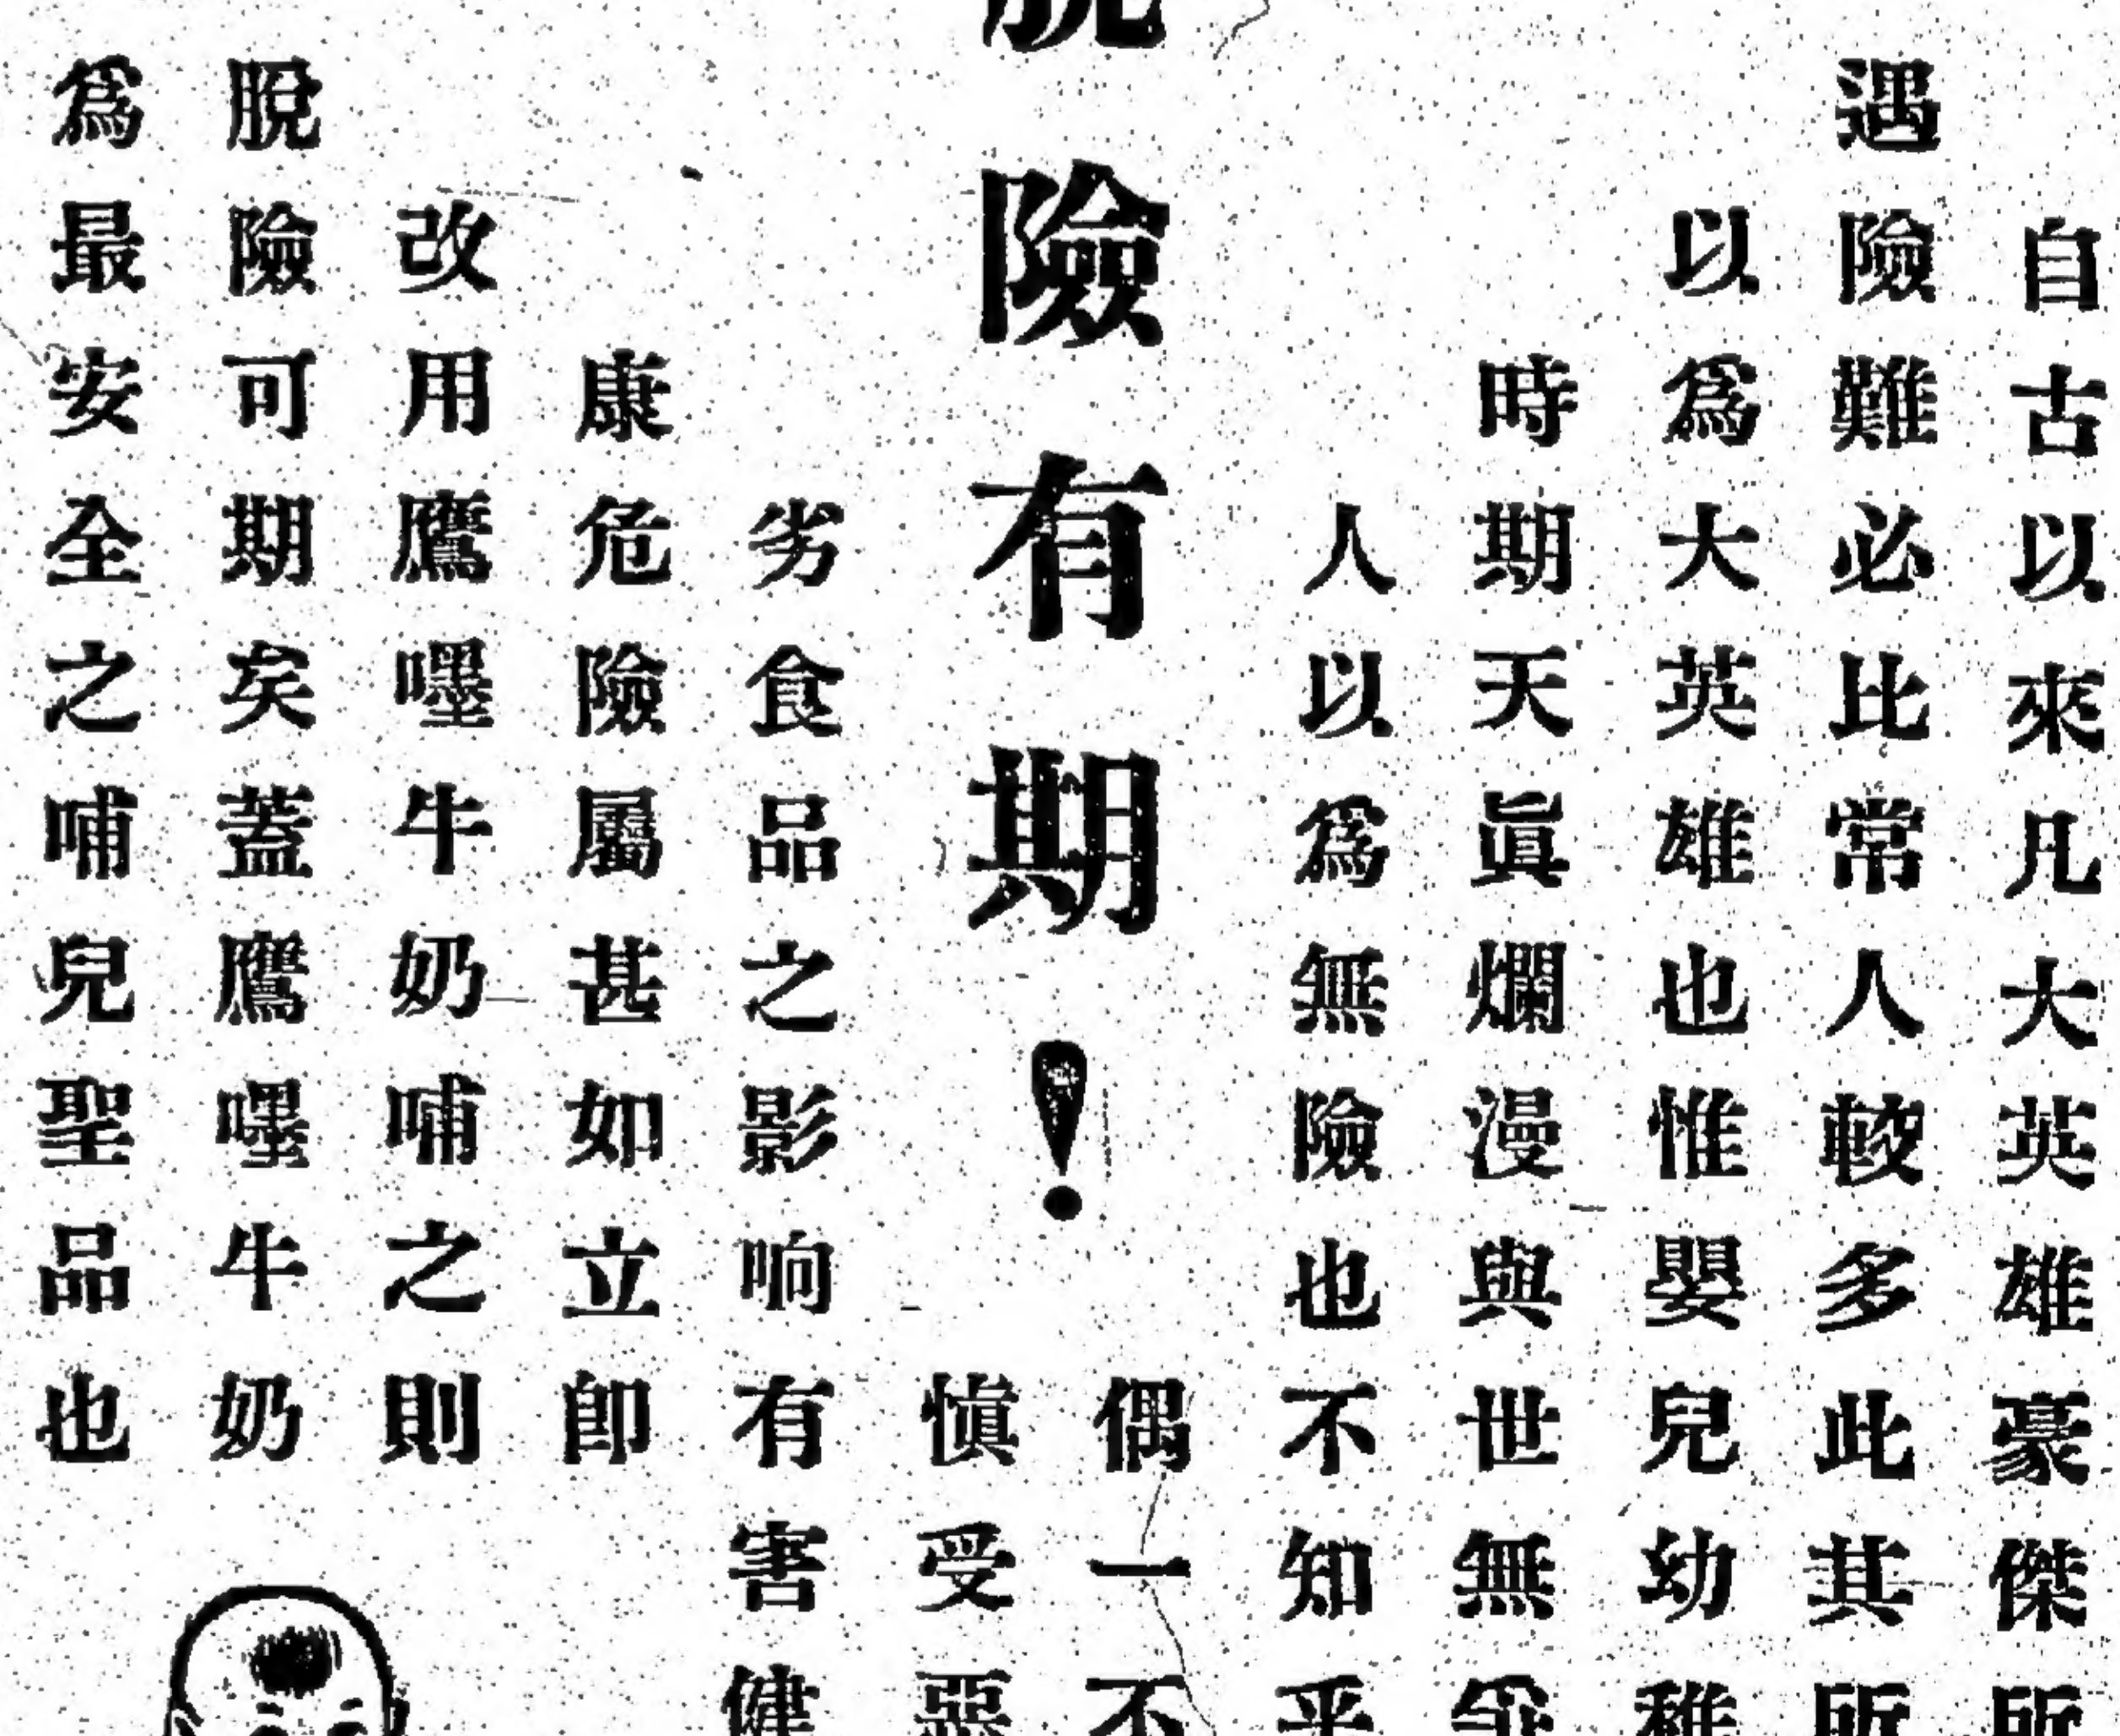 自古以來凡大英雄豪傑所
遇險難必比常人較多此其所
以爲大英雄也惟嬰兒幼稚
時期天眞爛漫與世無爭
人以爲無險也不知乎
偶一不
脫險有期！
愼受惡
劣食品之影响有害健
康危險屬甚如立卽
改用鷹嘜牛奶哺之則
脫險可期矣蓋鷹嘜牛奶
爲最安全之哺兒聖品也